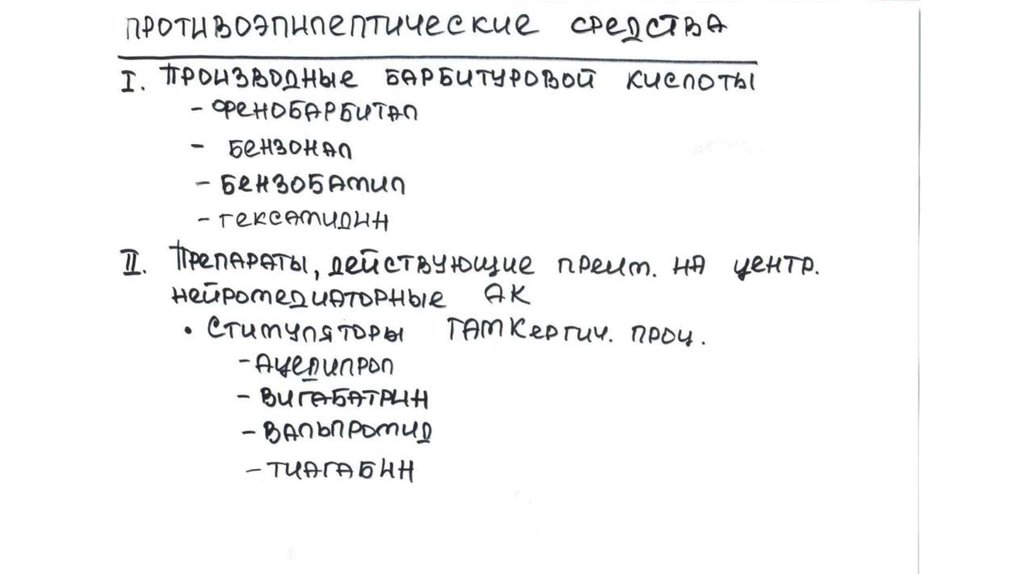 ПРОТИВОЭПИЛЕПТИЧЕСКИЕ СРЕДСТВА
I. ПРОИЗВОДНЫЕ БАРБИТУРОВОЙ КИСЛОТЫ
- ФЕНОБАРБИТАЛ
- БЕНЗОНАЛ
- БЕНЗОБАМИЛ
- ГЕКСАМИДИН
II. ПРЕПАРАТЫ, ДЕЙСТВУЮЩИЕ ПРЕИМ. НА ЦЕНТР.
НЕЙРОМЕДИАТОРНЫЕ АК
• СТИМУЛЯТОРЫ ГАМКергич. ПРОЦ.
- АЦЕДИПРОЛ
- ВИГАБАТРИН
- ВАЛЬПРОМИД
- ТИАГАБИН